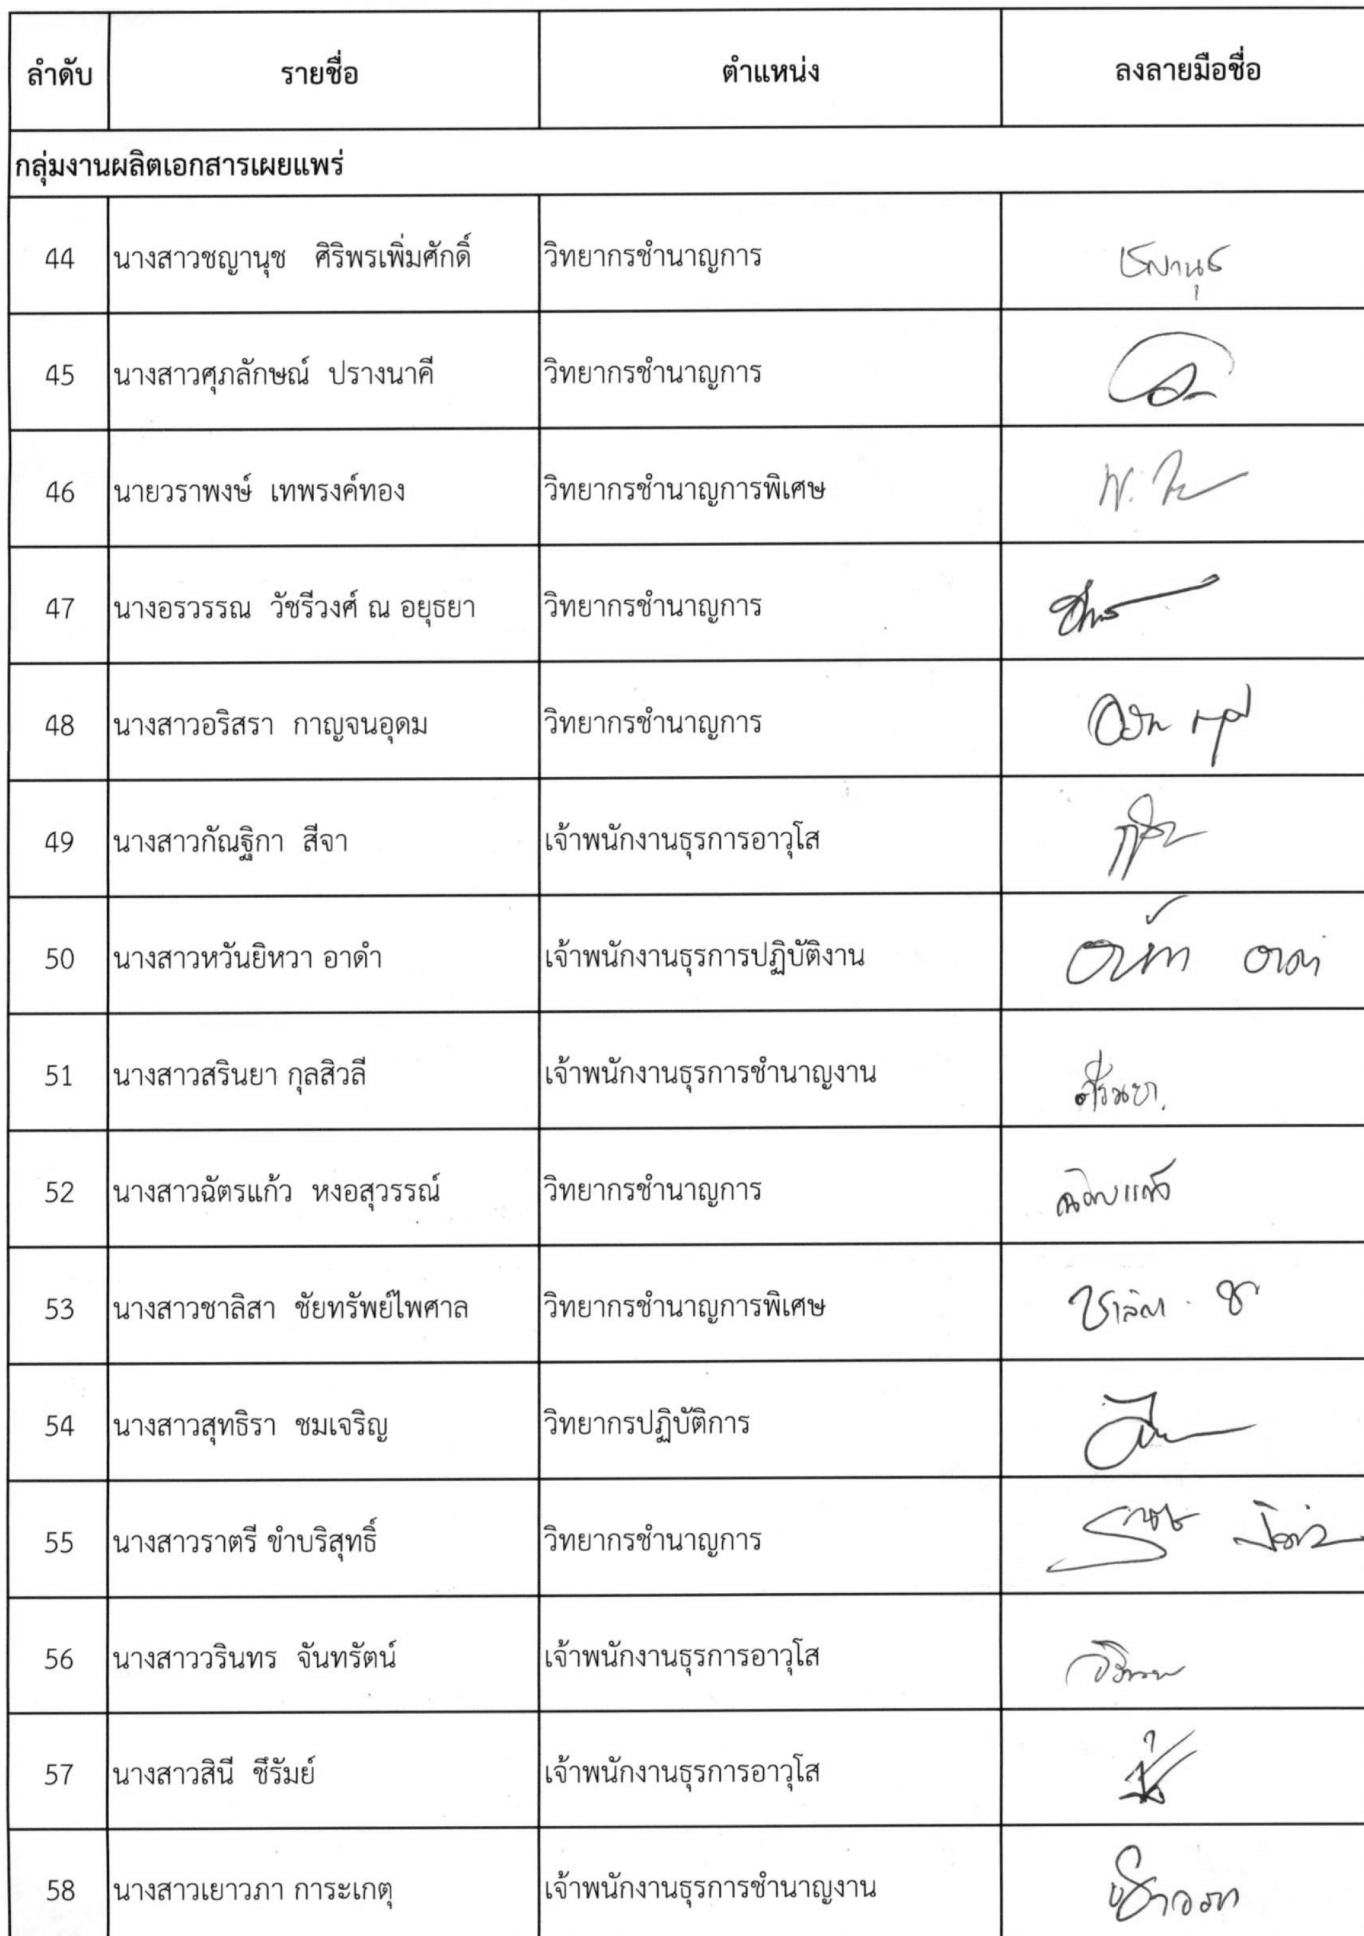 ลำดับ รายชื่อ ตำแหน่ง ลงลายมือชื่อ
กลุ่มงานผลิตเอกสารเผยแพร่
44 นางสาวชญานุช ศิริพรเพิ่มศักดิ์ วิทยากรชำนาญการ ชญานุช
45 นางสาวศุภลักษณ์ ปรางนาคี วิทยากรชำนาญการ
46 นายวราพงษ์ เทพรงค์ทอง วิทยากรชำนาญการพิเศษ
47 นางอรวรรณ วัชรีวงศ์ ณ อยุธยา วิทยากรชำนาญการ
48 นางสาวอริสรา กาญจนอุดม วิทยากรชำนาญการ
49 นางสาวกัณฐิกา สีจา เจ้าพนักงานธุรการอาวุโส
50 นางสาวหวันยิหวา อาดำ เจ้าพนักงานธุรการปฏิบัติงาน
51 นางสาวสรินยา กุลสิวลี เจ้าพนักงานธุรการชำนาญงาน สรินยา
52 นางสาวฉัตรแก้ว หงอสุวรรณ์ วิทยากรชำนาญการ ฉัตรแก้ว
53 นางสาวชาลิสา ชัยทรัพย์ไพศาล วิทยากรชำนาญการพิเศษ ชาลิสา . ช
54 นางสาวสุทธิรา ชมเจริญ วิทยากรปฏิบัติการ
55 นางสาวราตรี ขำบริสุทธิ์ วิทยากรชำนาญการ
56 นางสาววรินทร จันทรัตน์ เจ้าพนักงานธุรการอาวุโส
57 นางสาวสินี ชีรัมย์ เจ้าพนักงานธุรการอาวุโส
58 นางสาวเยาวภา การะเกตุ เจ้าพนักงานธุรการชำนาญงาน